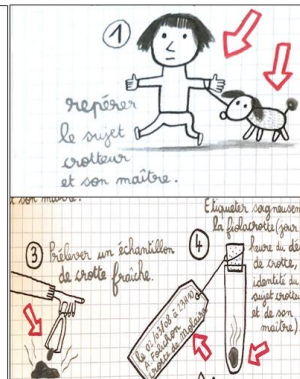 1
repérer
le sujet
crotteur
et son maître.
3
Prélever un échantillon
de crotte fraîche.
4
Etiqueter soigneusem
la fiolacrotte (jour
heure du dé
de crotte,
identité du
sujet crotte
et de son
maître)
crotte de Molaire